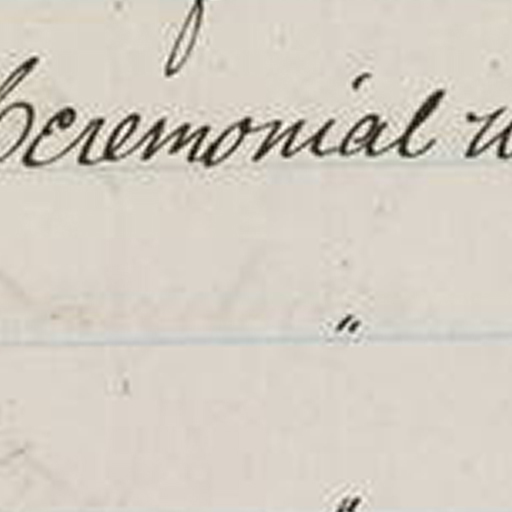 Ceremonial
"
"